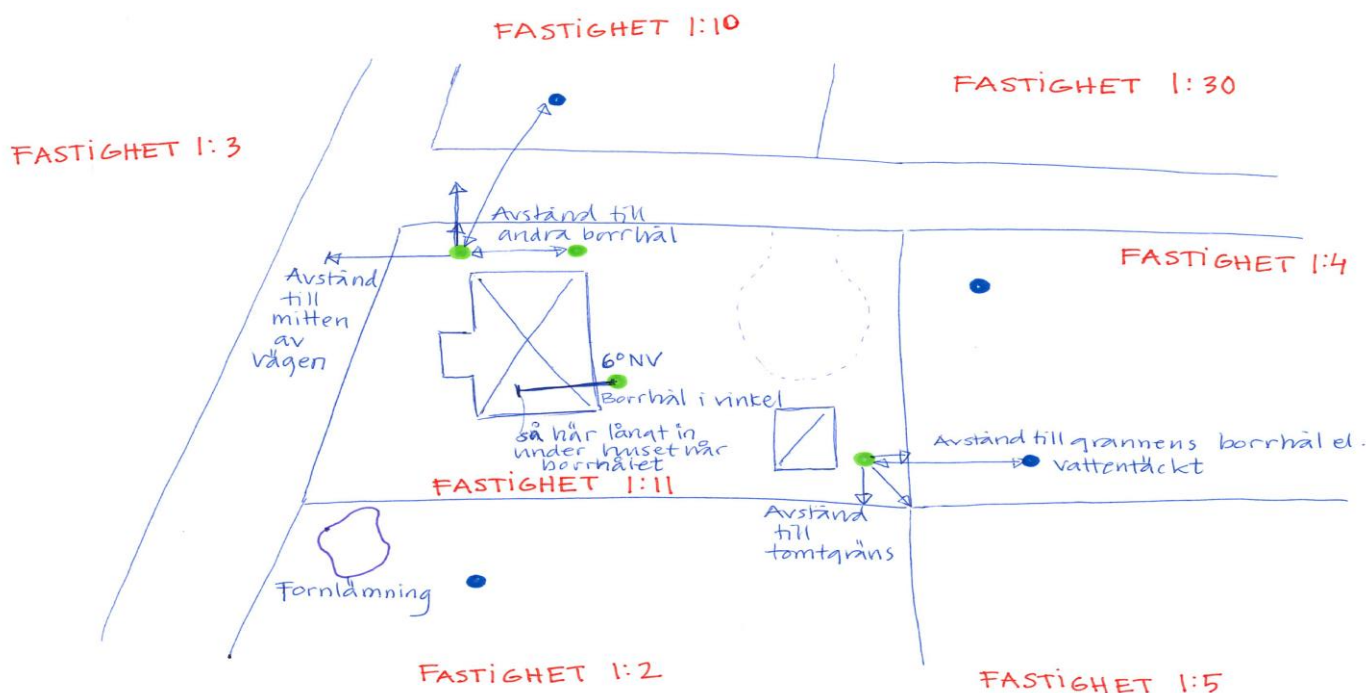 FASTIGHET 1:10
FASTIGHET 1:30
FASTIGHET 1:3
Avstånd till
andra borrhål
Avstånd
till
mitten
av
vägen
FASTIGHET 1:4
6° NV
Borrhål i vinkel
så här långt in
under huset når
borrhålet
FASTIGHET 1:11
Avstånd till grannens borrhål el.
vattentäckt
Avstånd
till
tomtgräns
Fornlämning
FASTIGHET 1:2
FASTIGHET 1:5